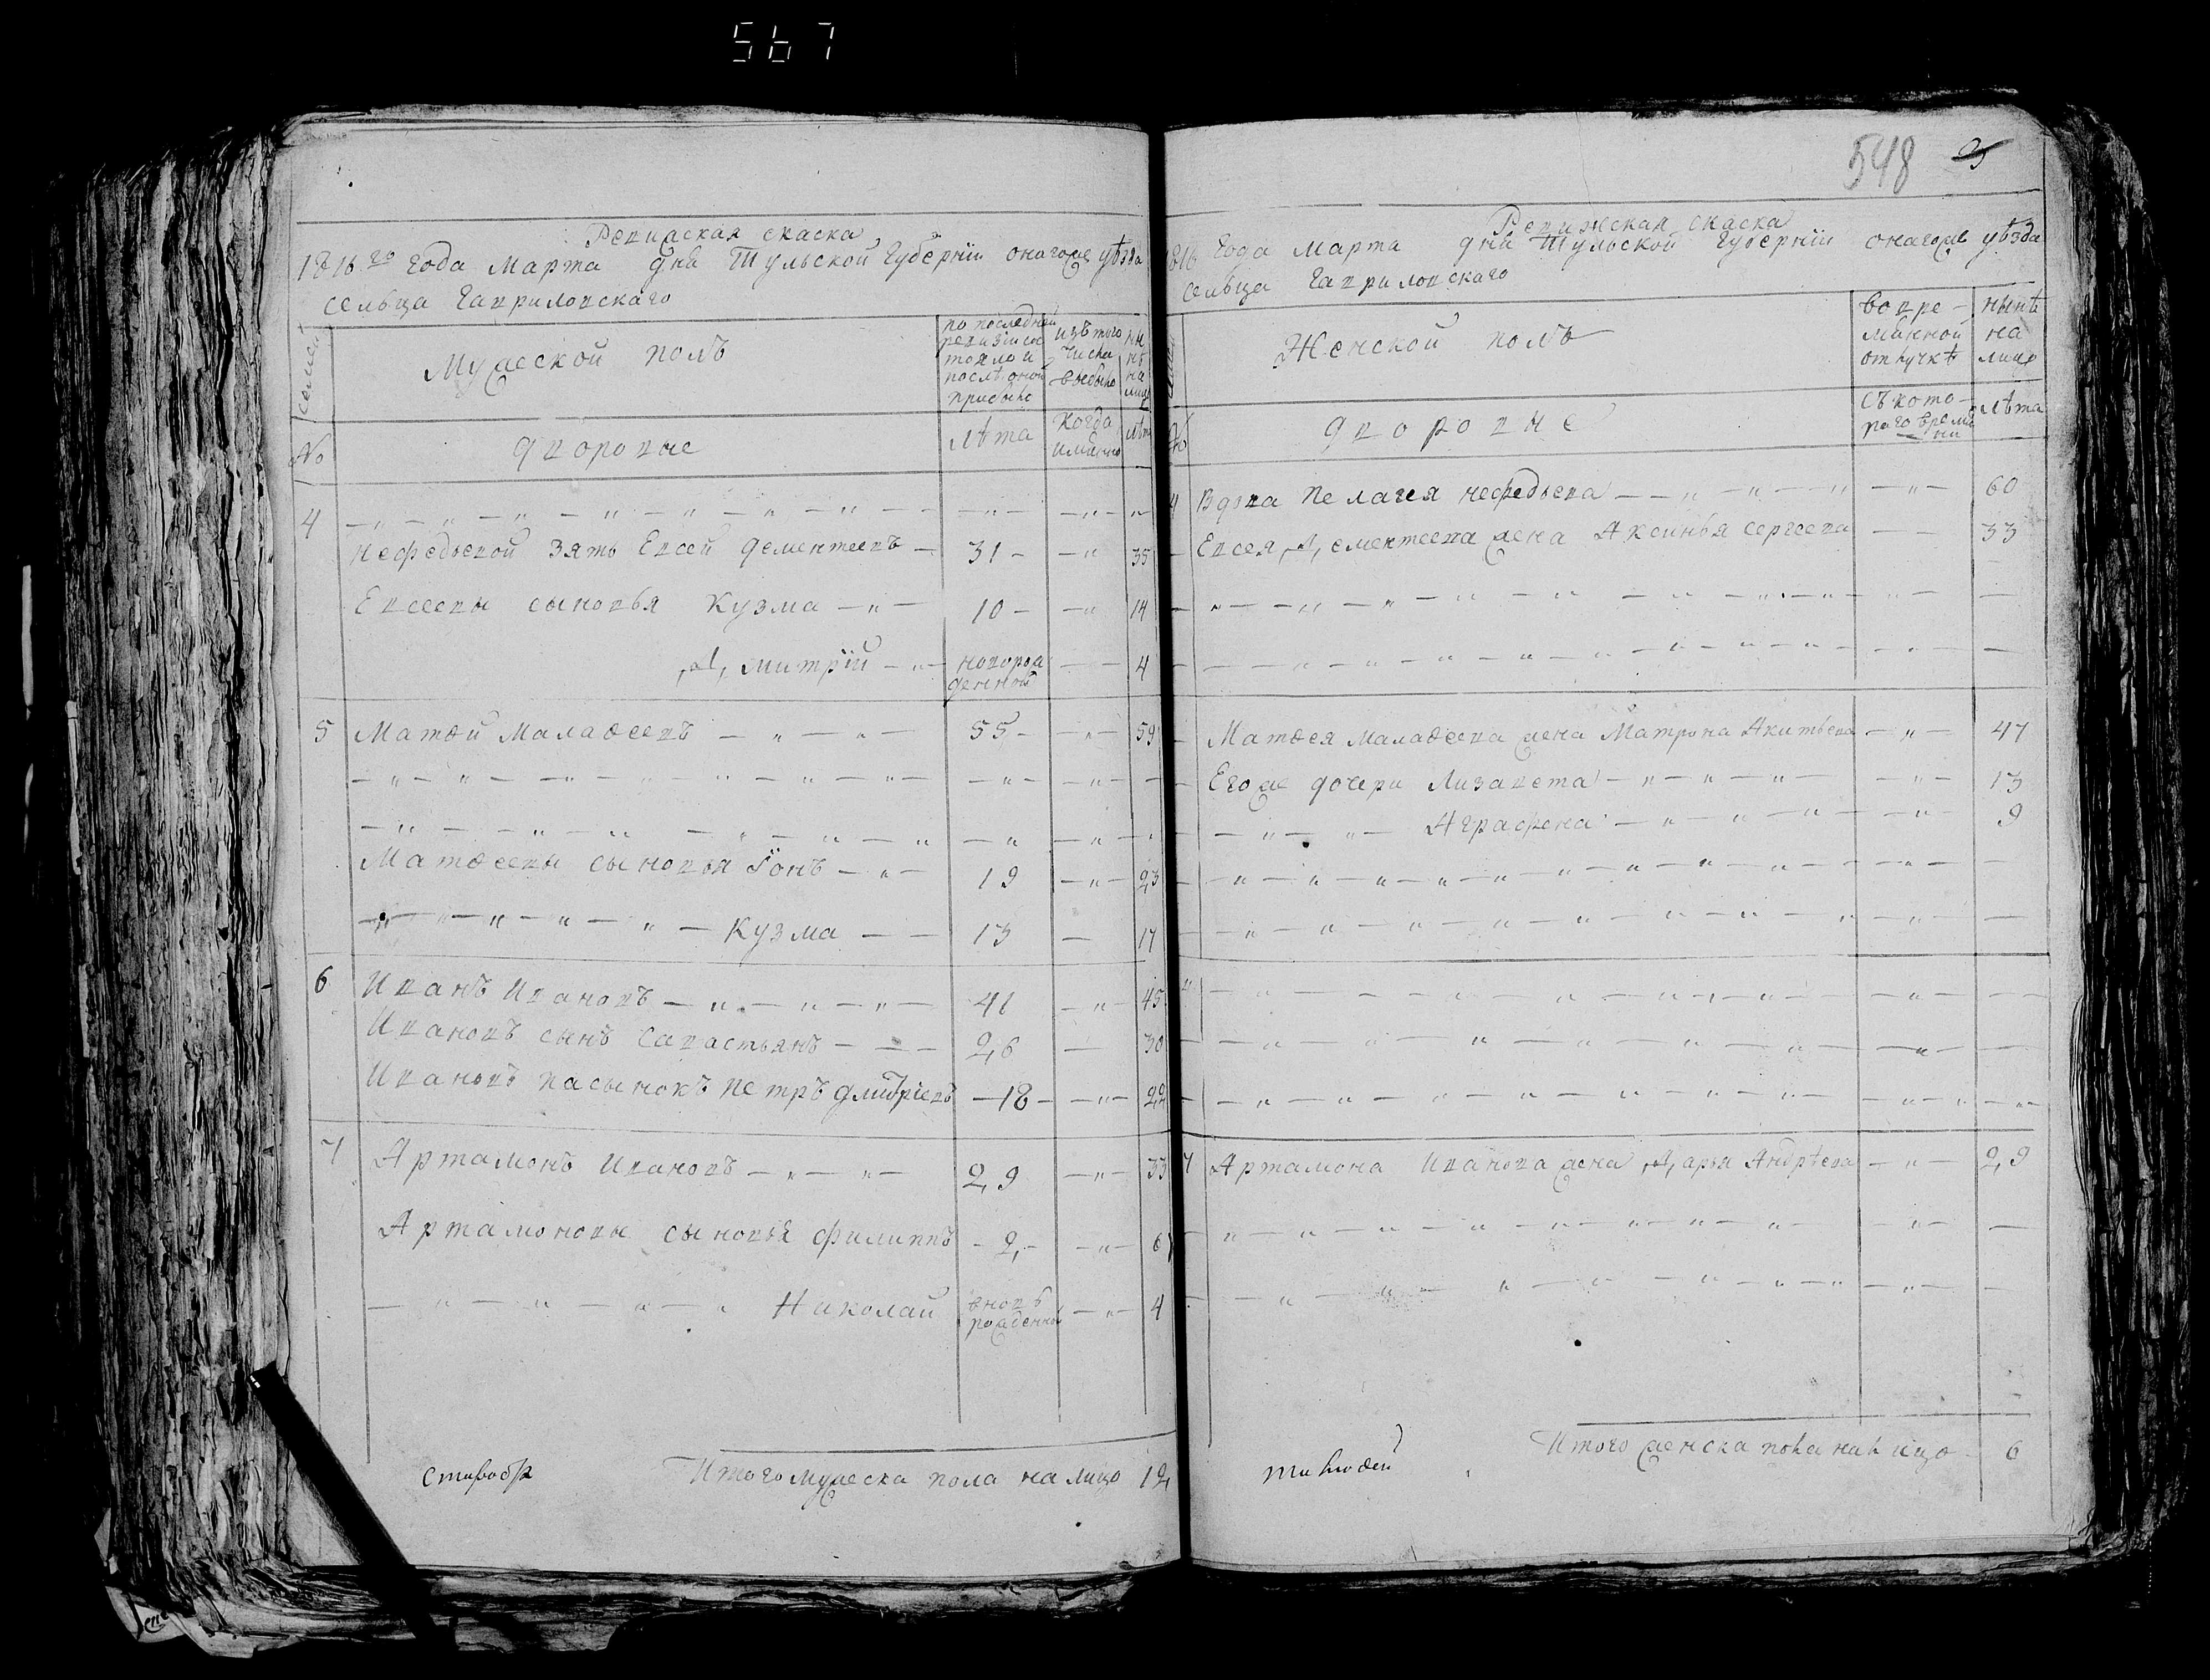 567
Ревижская скаска
1816го года Марта дня Тульской Губерніи оногоже уѣзда
сельца Гавриловскаго
семей
Мужеской полъ
по последней ревизіи состояло и послѣ оной прибыло
изъ того числа выбыло
нынѣ на лицо
№
дворовые
лѣта
когда именно
лѣта
4
Нефедьевой зять Евсей Дементеевъ 31 35
Евсеевы сыновья Кузма 10 14
Дмитрій новорожденный 4
5 Матѳей Малаѳеевъ 55 59
Матѳеевы сыновья Іонъ 19 23
Кузма 13 17
6 Иванъ Ивановъ 41 45
Ивановъ сынъ Савастьянъ 26 30
Ивановъ пасынокъ Петръ Дмитріевъ 18 22
7 Артамонъ Ивановъ 29 33
Артамоновы сыновья Филиппъ 2 6
Николай вновь рожденной 4
Итого мужеска пола на лицо 12
548 3
Ревижская скаска
1816 года Марта дня Тульской Губерніи оногоже уѣзда
сельца Гавриловскаго
Женской полъ
во временной отлучкѣ
нынѣ на лицо
№
дворовые
съ которого времени
лѣта
4 Вдова Пелагея Нефедьева 60
Евсея Дементеева жена Аксинья Сергеева 33
Матѳея Малаѳеева жена Матрона Акитьева 47
Егоже дочери Лизавета 13
Аграфена 9
7 Артамона Иванова жена Дарья Андрѣева 29
Итого женска пола на лицо 6